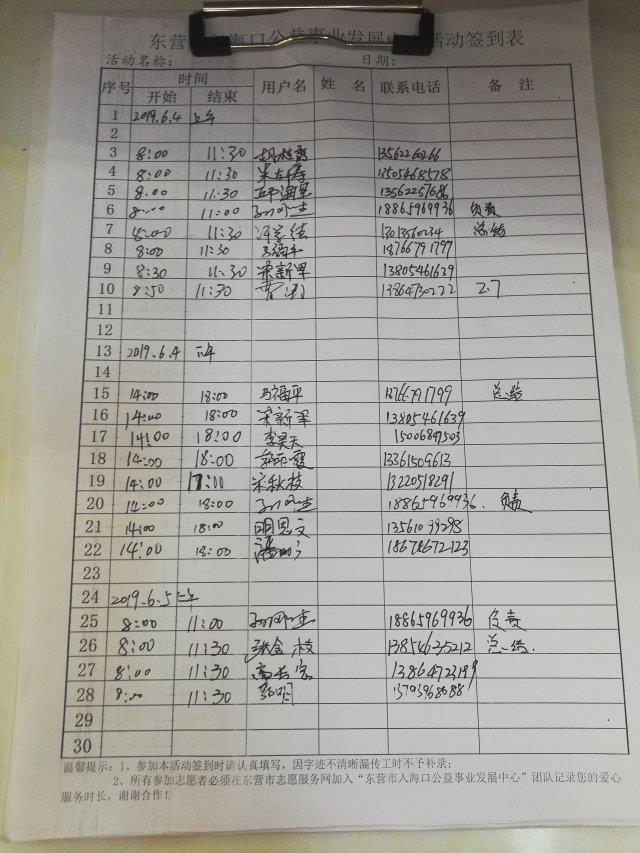 东营市入海口公益事业发展中 活动签到表
活动名称： 日期：
序号 时间 用户名 姓 名 联系电话 备 注
开始 结束
1 2019.6.4 上午
2
3 8:00 11:30 13562260266
4 8:00 11:30 13505468578
5 8:00 11:30 13562257686
6 8:00 11:00 18865969936 负责
7 8:00 11:30 3013560234 总结
8 8:00 11:30 马福平 18766791797
9 8:30 11:30 宋新军 13805461639
10 8:50 11:30 13864730222 2.7
11
12
13 2019.6.4 下午
14
15 14:00 18:00 马福平 18766791799 总结
16 14:00 18:00 宋新军 13805461639
17 14:00 18:00 李昊天 15006847503
18 14:00 18:00 13361509613
19 14:00 17:00 宋秋枝 13220518291
20 14:00 18:00 18865969936 负责
21 14:00 18:00 明思文 13561099298
22 14:00 18:00 18678672123
23
24 2019.6.5 上午
25 8:00 11:00 18865969936 负责
26 8:00 11:30 张金枝 13854635212 总结.
27 8:00 11:30 13864723199
28 8:00 11:30 郭明
29
30
温馨提示：1、参加本活动签到时请认真填写，因字迹不清晰漏传工时不予补录；
2、所有参加志愿者必须在东营市志愿服务网加入“东营市入海口公益事业发展中心”团队记录您的爱心
服务时长，谢谢合作！